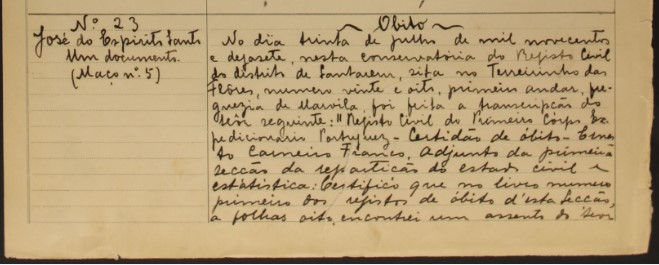 Nº 23
José do Espirito Santo
Um documento.
(Maço nº 5)
Obito
No dia trinta de julho de mil novecentos
e dezasete, nesta conservatória do Registo Civil
do distrito de Santarem, sita no Terreirinho das
Flôres, numero vinte e oito, primeiro andar, fre-
guezia de Marvila, foi feita a transcripção do
teôr seguinte: "Registo Civil do Primeiro Corpo Ex-
pedicionario Portuguez - Certidão de óbito - Ernes
to Carneiro Franco, Adjunto da primeira
secção da repartição do estado civil e
estatistica: Certifico que no livro numero
primeiro dos registos de óbito d'esta Secção,
a folhas oito, encontrei um assento do teor